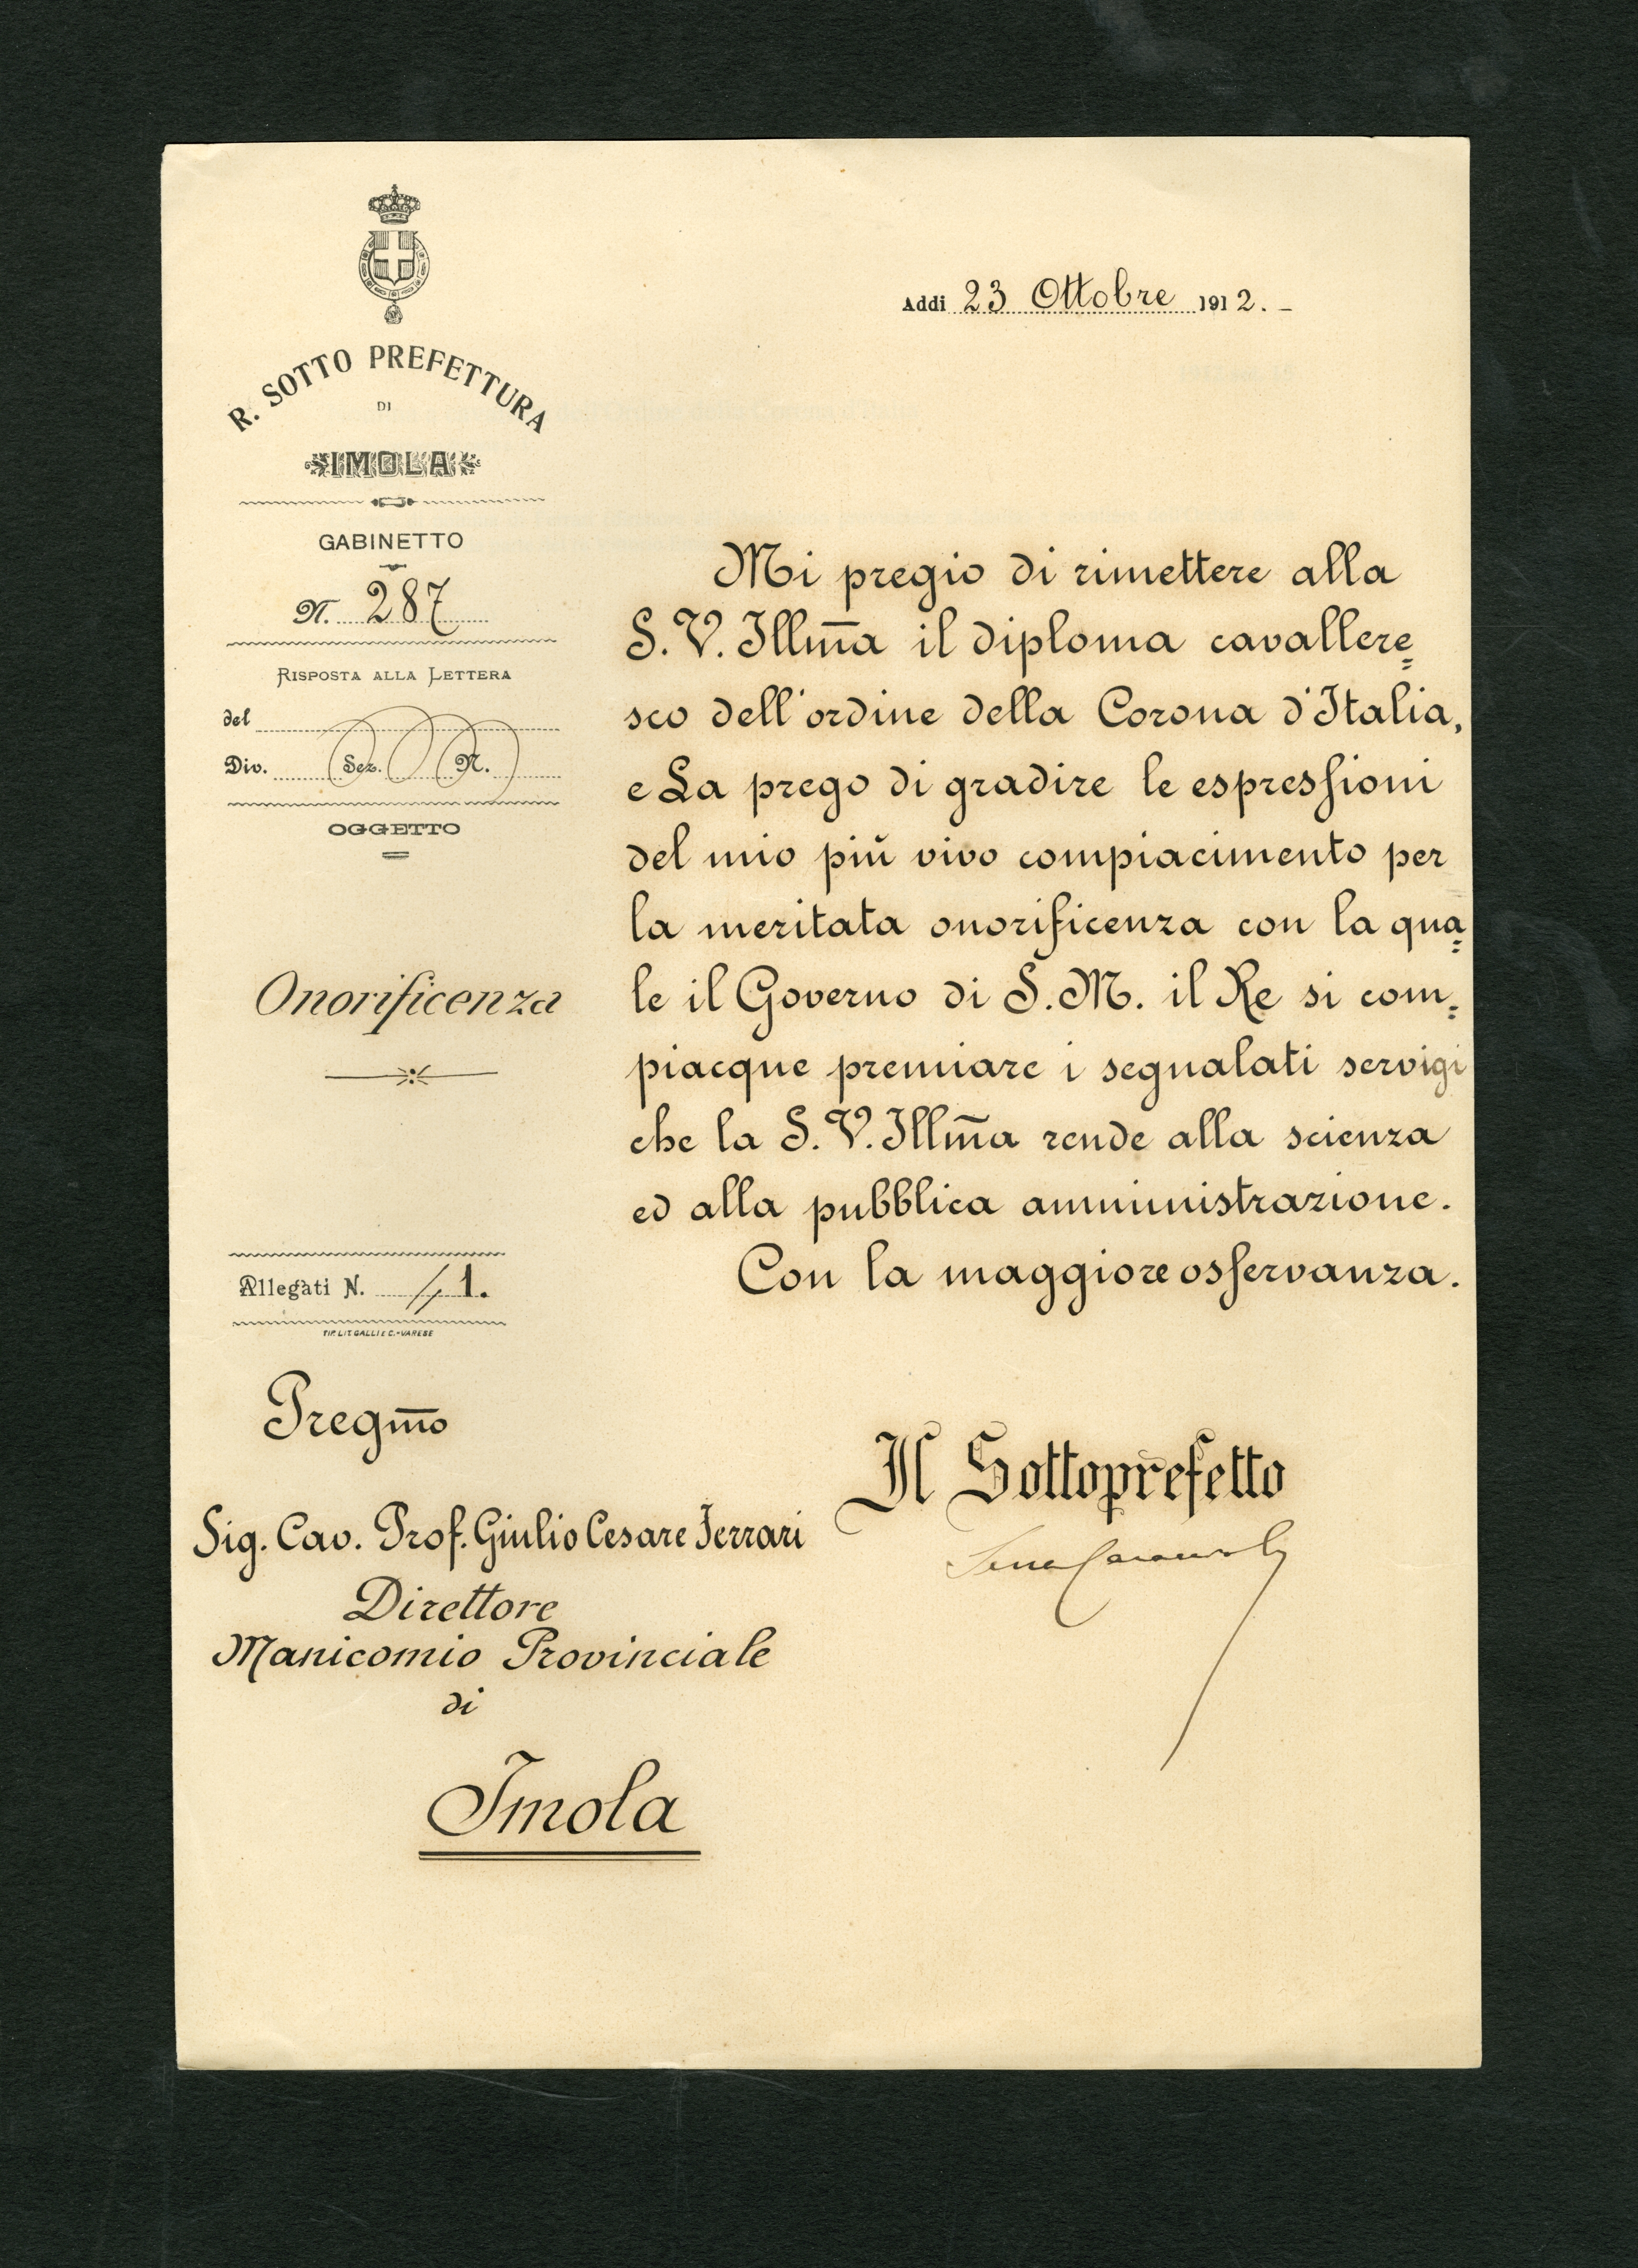 R. SOTTO PREFETTURA
DI
IMOLA
GABINETTO
N. 287
RISPOSTA ALLA LETTERA
del
Div. Sez. N.
OGGETTO
Onorificenza
Allegati N. 1.
TIP. LIT. GALLI E C. - VARESE
Addi 23 Ottobre 1912. -
Mi pregio di rimettere alla
S. V. Illm̅a il diploma cavallere=
sco dell'ordine della Corona d'Italia,
e La prego di gradire le espressioni
del mio più vivo compiacimento per
la meritata onorificenza con la qua=
le il Governo di S. M. il Re si com=
piacque premiare i segnalati servigi
che la S. V. Illm̅a rende alla scienza
ed alla pubblica amministrazione.
Con la maggiore osservanza.
Il Sottoprefetto
Pregm̅o
Sig. Cav. Prof. Giulio Cesare Ferrari
Direttore
Manicomio Provinciale
di
Imola